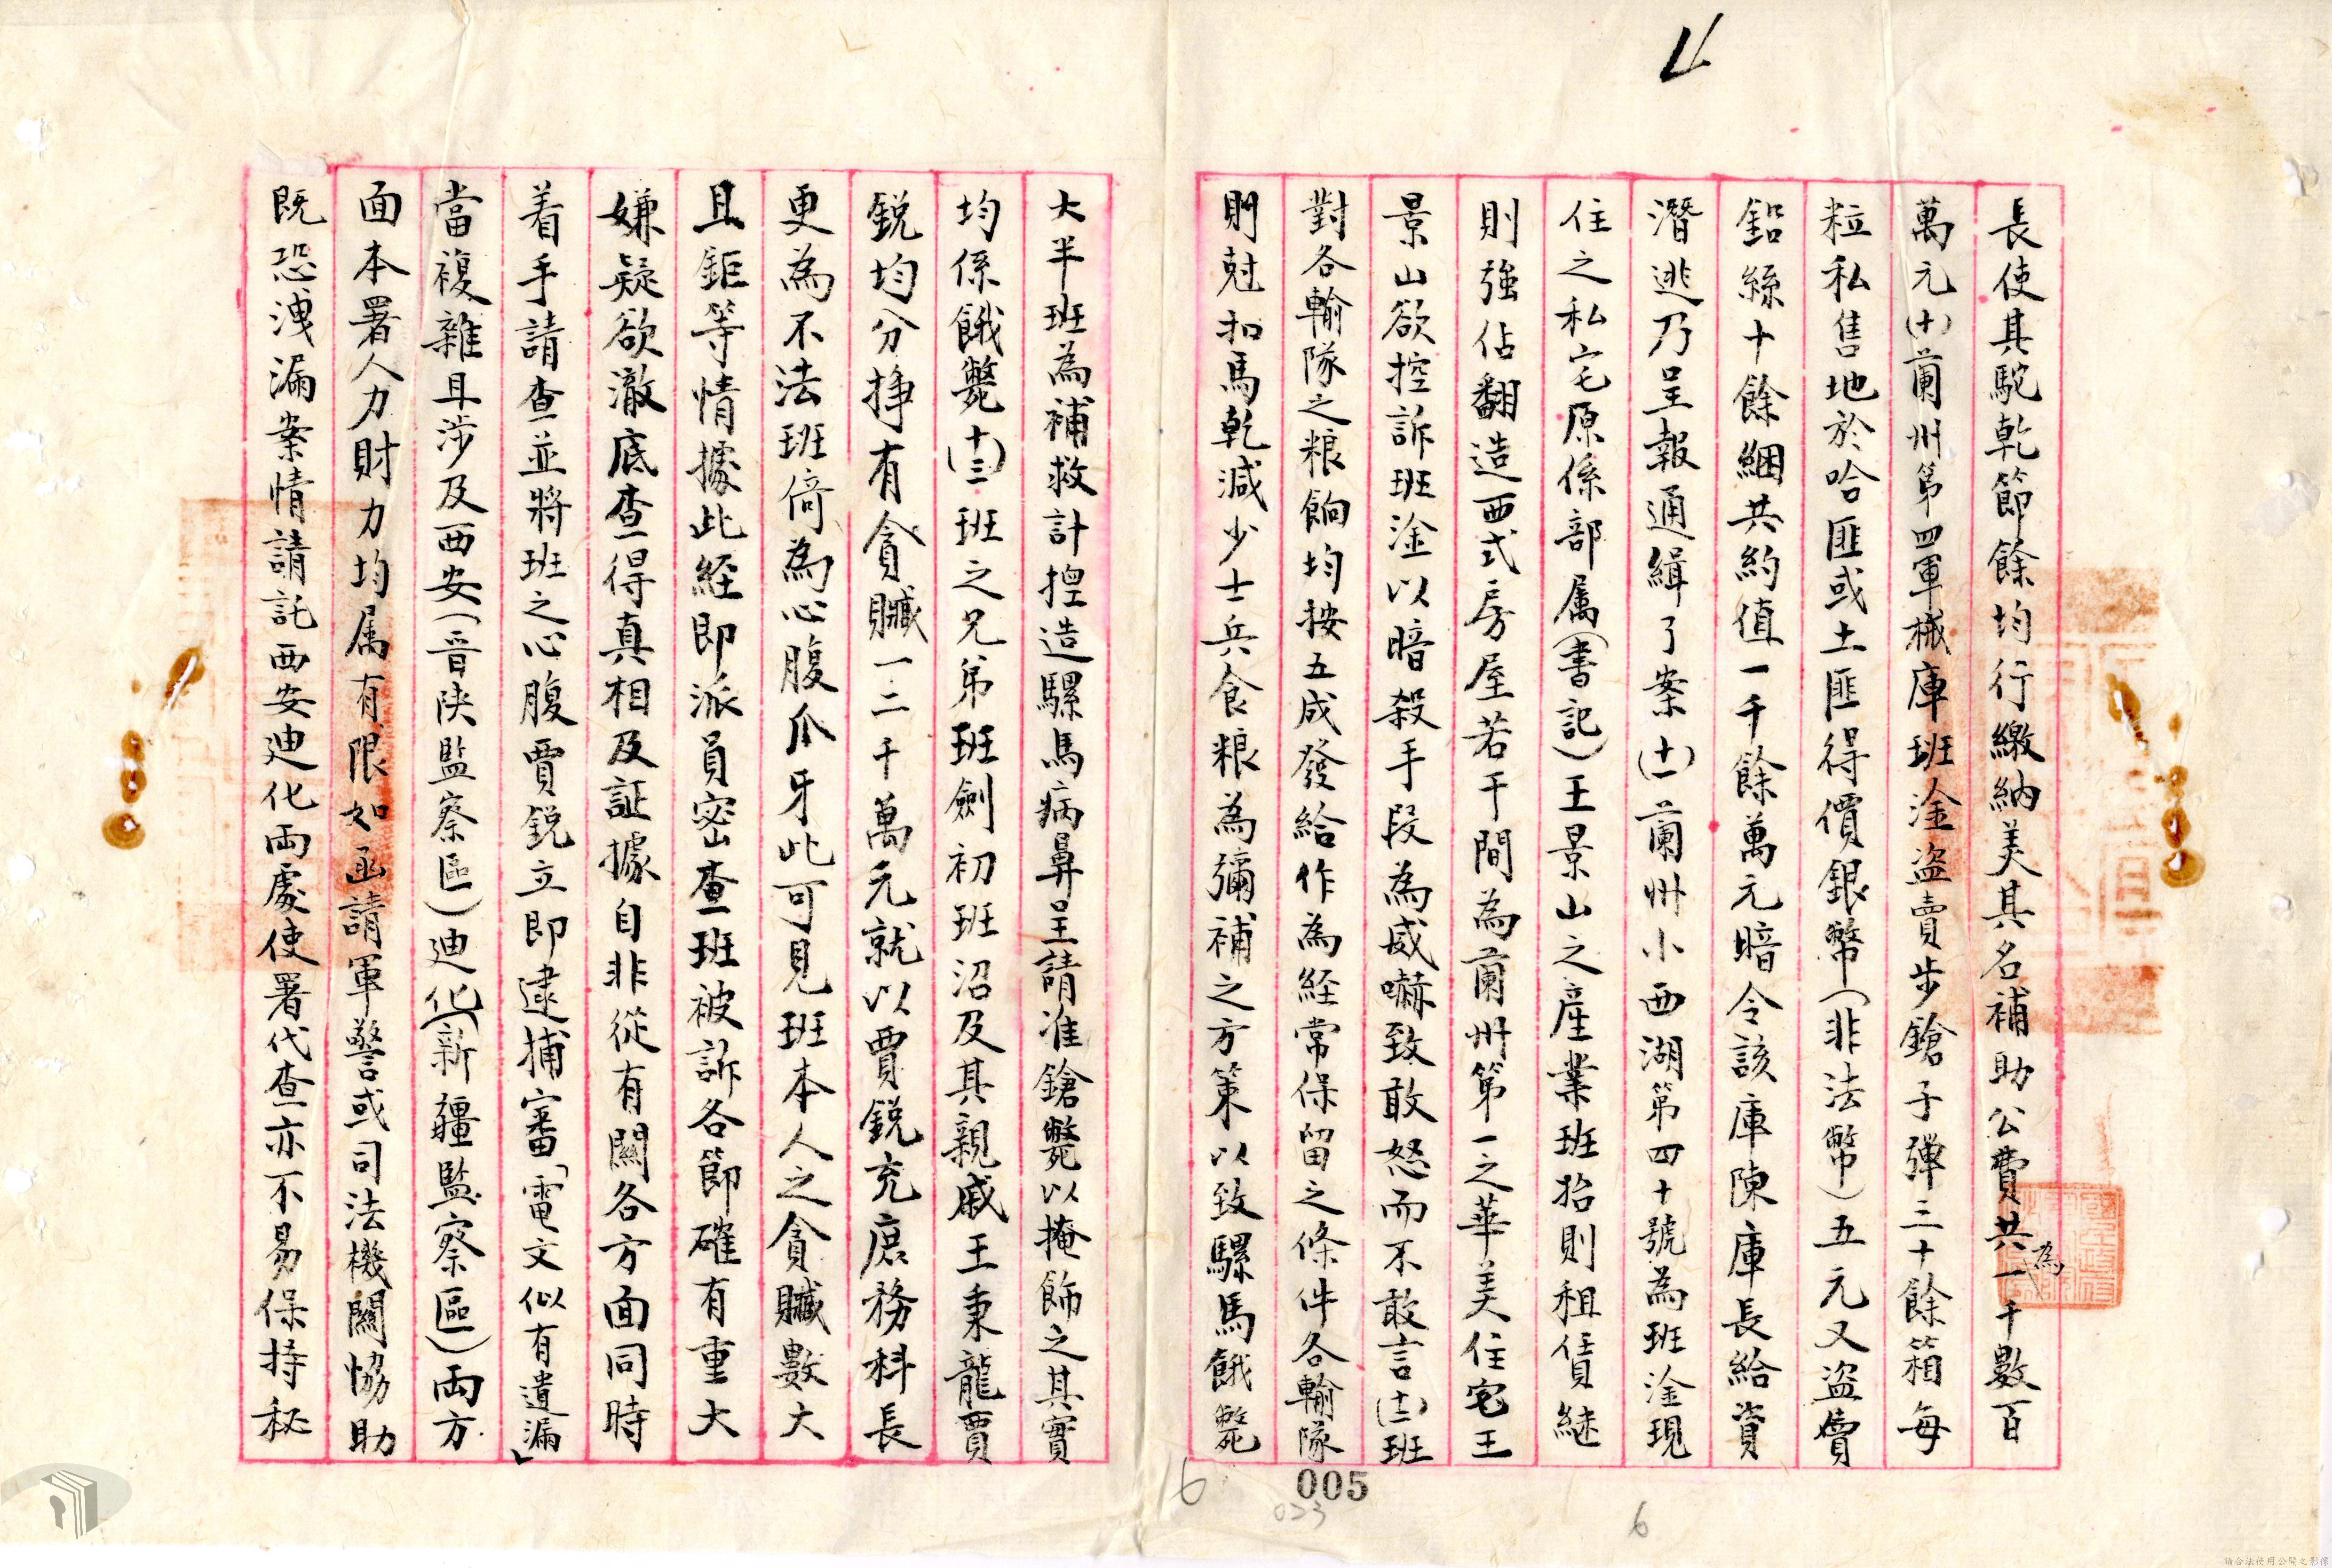 長使其駝乾節餘均行繳納美其名補助公費共為一千數百
萬元(十)蘭州第四軍械庫班淦盜賣步鎗子彈三十餘箱每
粒私售地於哈匪或土匪得價銀幣(非法幣)五元又盜賣
鉛絲十餘綑共約值一千餘萬元暗令該庫陳庫長給資
潛逃乃呈報通緝了案(十一)蘭州小西湖第四十號為班淦現
住之私宅原係部属(書記)王景山之產業班始則租賃継
則強佔翻造西式房屋若干間為蘭州第一之華美住宅王
景山欲控訴班淦以暗殺手段為威嚇致敢怒而不敢言(十二)班
對各輸隊之粮餉均按五成發給作為経常保留之條件各輸隊
則尅扣馬乾減少士兵食粮為彌補之方策以致騾馬餓斃
大半班為補救計揑造騾馬病鼻呈請准鎗斃以掩飾之其實
均係餓斃(十三)班之兄弟班劍初班沼及其親戚王秉龍賈
銳均分掙有貪贓一二千萬元就以賈銳充庶務科長
更為不法班倚為心腹爪牙此可見班本人之貪贓數大
且鉅等情據此経即派員密查班被訴各節確有重大
嫌疑欲澈底查得真相及証據自非從有關各方面同時
着手請查並將班之心腹賈銳立即逮捕審「電文似有遺漏」
當複雜且涉及西安(晋陝監察區)迪化(新疆監察區)両方
面本署人力財力均属有限如函請軍警或司法機關恊助
既恐洩漏案情請託西安迪化両處使署代查亦不易保持秘
005
023
6
6
請合法使用公開之影像